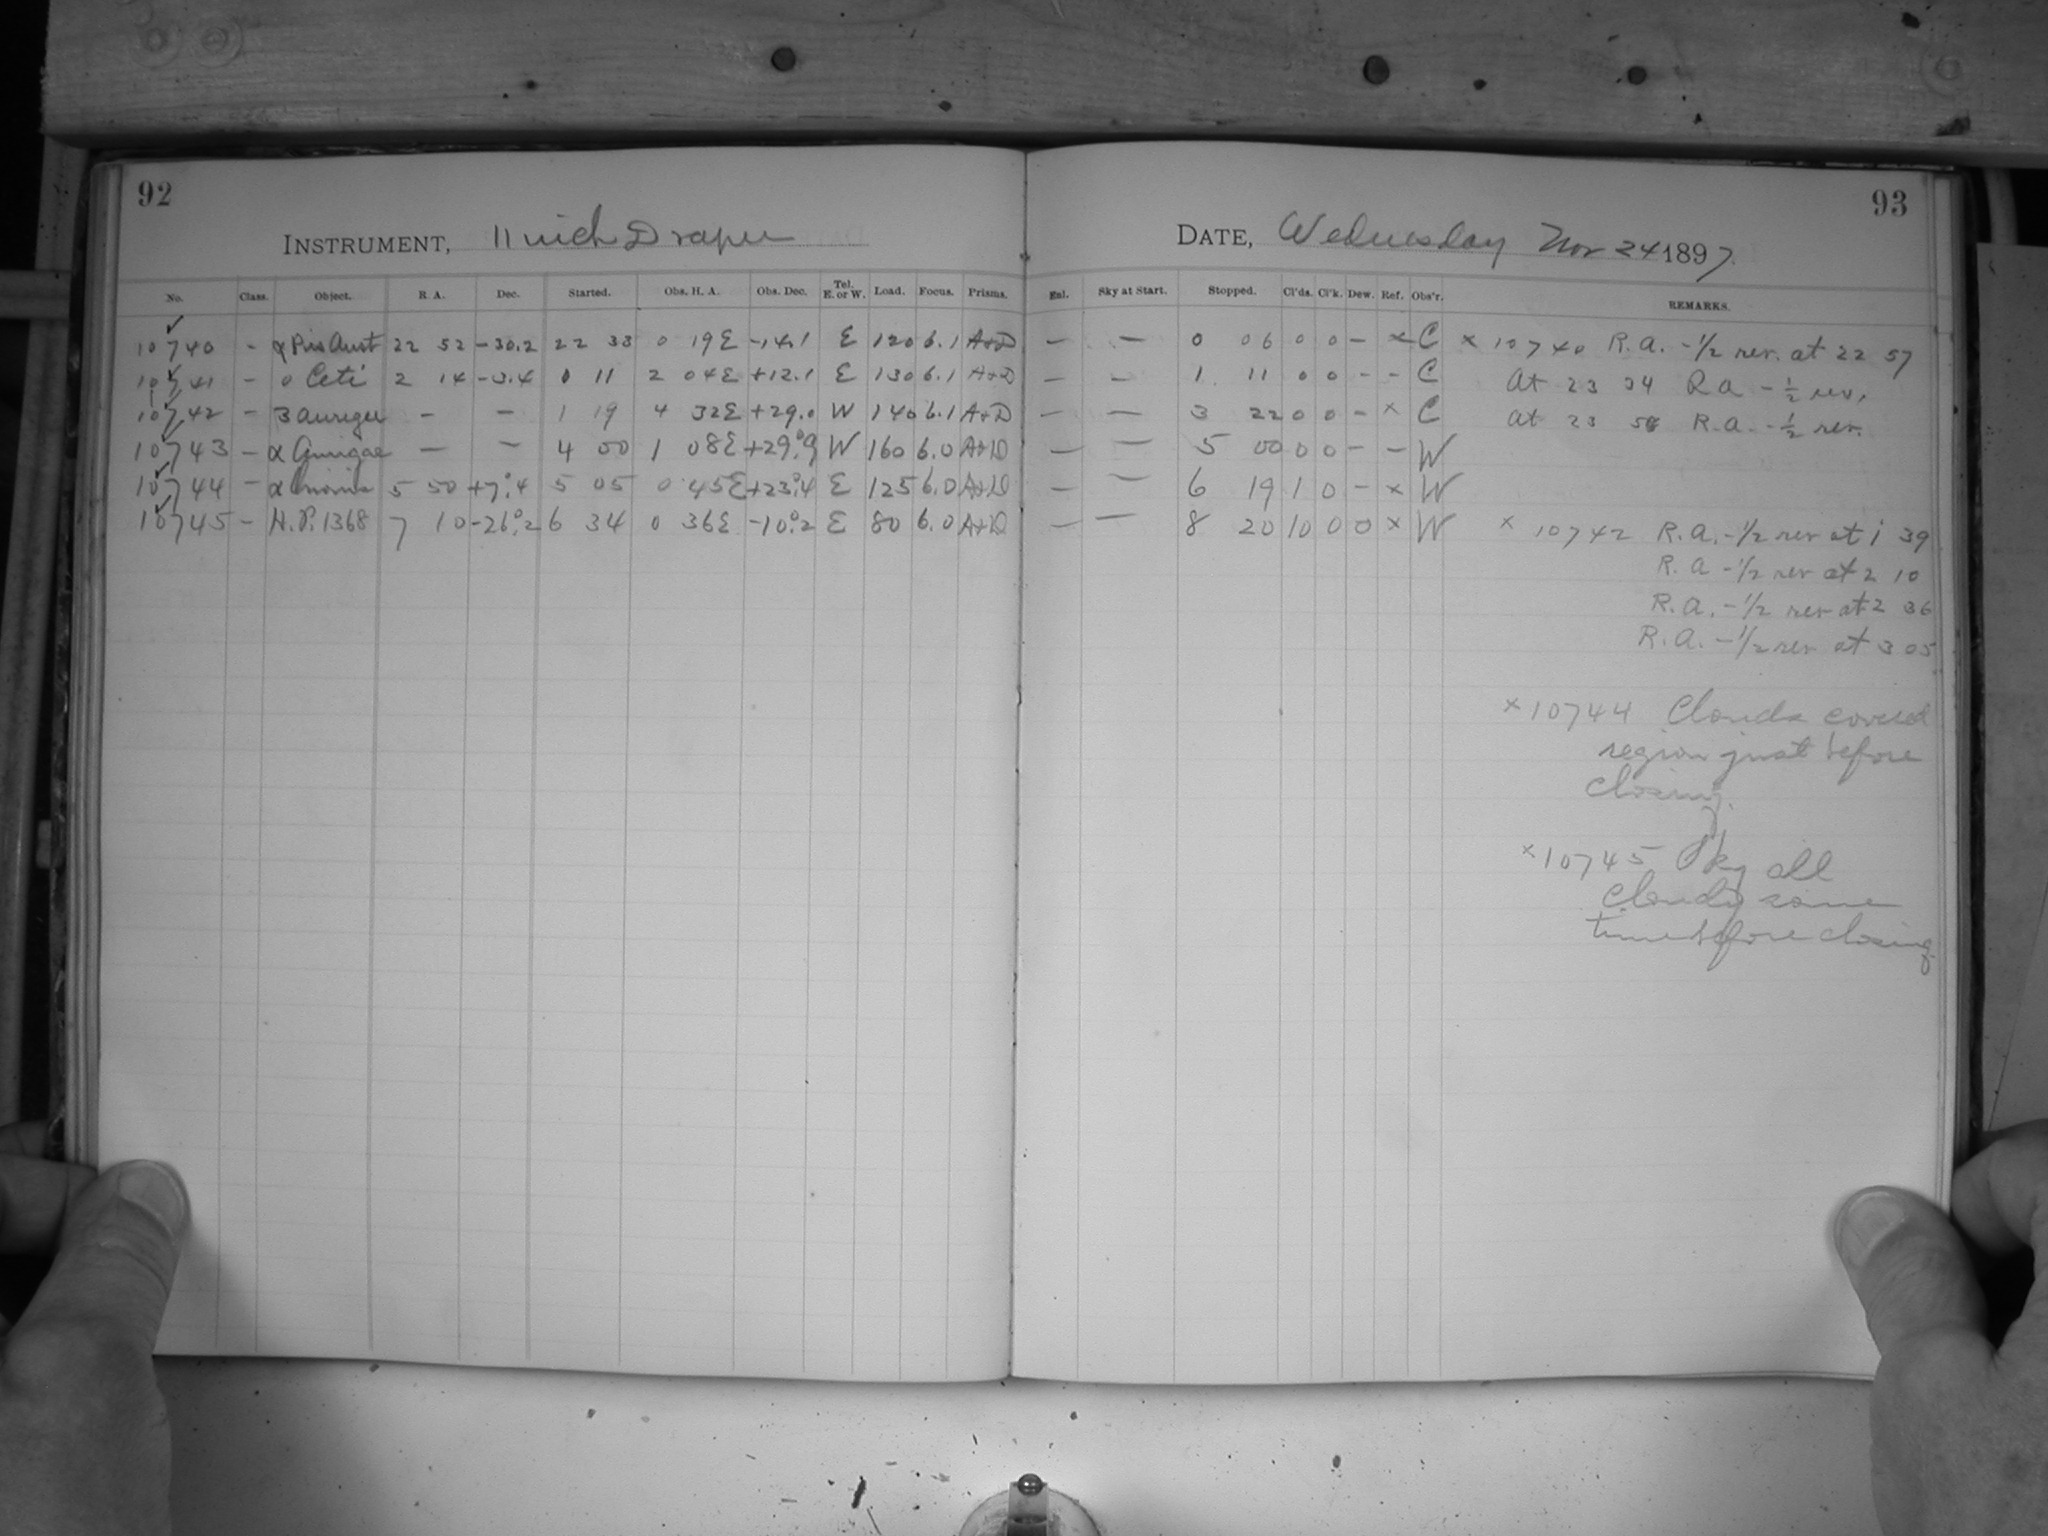 92
INSTRUMENT, 11 inch Draper
No. Class. Object. R. A. Dec. Started. Obs. H. A. Obs. Dec. Tel. E. or W. Load. Focus. Prisms.
10740 - α Pis Aust 22 52 -30.2 22 33 0 19E -14.1 E 120 6.1 A+D
10741 - o Ceti 2 14 -3.4 0 11 2 04E +12.1 E 130 6.1 A+D
10742 - β aurigae - - 1 19 4 32E +29.0 W 140 6.1 A+D
10743 - α Aurigae - - 4 00 1 08E +29.°9 W 160 6.0 A+D
10744 - α Orionis 5 50 +7.°4 5 05 0 45E +23.°4 E 125 6.0 A+D
10745 - H.P. 1368 7 10 -26.°2 6 34 0 36E -10.°2 E 80 6.0 A+D
93
DATE, Wednesday Nov 24 1897.
Enl. Sky at Start. Stopped. Cl'ds. Cl'k. Dew. Ref. Obs'r. REMARKS.
- - 0 06 0 0 - × C × 10740 R.A. -1/2 rev. at 22 57
- - 1 11 0 0 - - C At 23 34 R a - 1/2 rev.
- - 3 22 0 0 - × C at 23 58 R.a. - 1/2 rev.
- - 5 00 0 0 - - W
- - 6 19 1 0 - × W
- - 8 20 10 0 0 × W × 10742 R.A. -1/2 rev at 1 39
R.a -1/2 rev at 2 10
R.a. -1/2 rev at 2 36
R.a. -1/2 rev at 3 05
×10744 Clouds covered
region just before
closing.
×10745 Sky all
cloudy some
time before closing